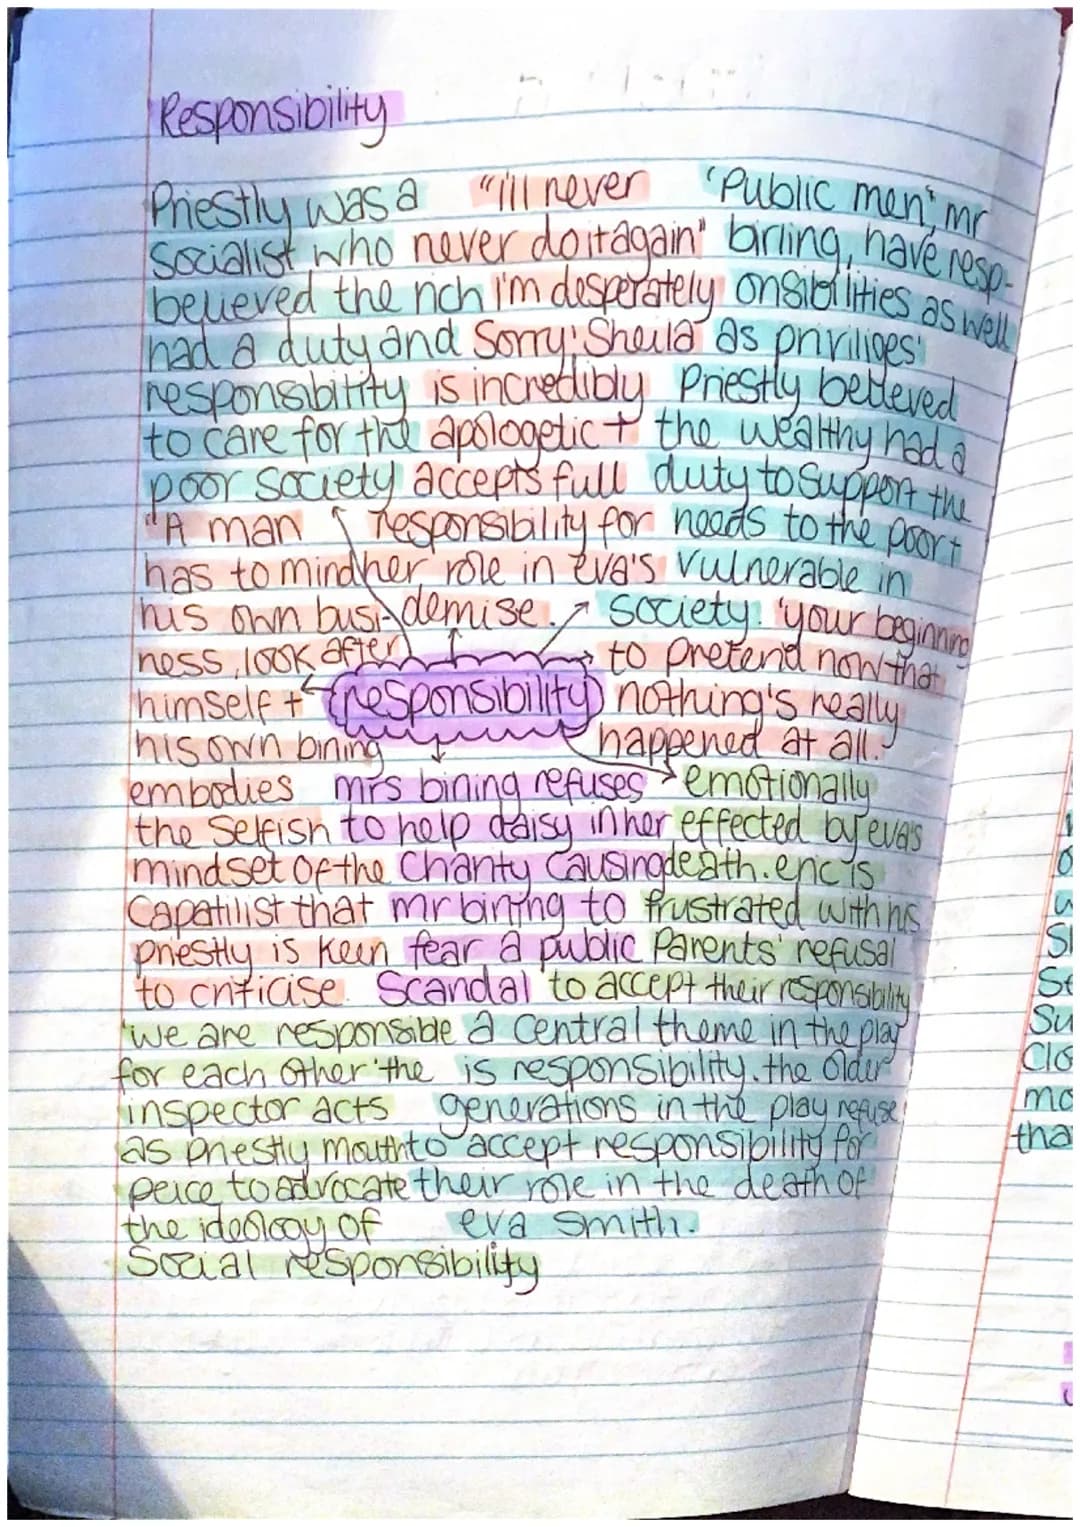 Responsibility
Priestly was a
Socialist who
believed the rich
had a duty and
responsibility
to care for the
poor society
"i'll never
never do it again"
i'm desperately
Sorry' Sheila
is incredibly
apologetic +
accepts full
responsibility for
her role in eva's
demise.
'Public men', mr
birling, have resp-
onsibilities as well
as priviliges'
Priestly believed
the wealthy had a
duty to support the
needs to the poor +
vulnerable in
society.
"A man
has to mind
his own busi-
ness, look after
himself +
his own birling
embodies
the selfish
mindset of the
Capatilist that
priestly is keen
to criticise.
responsibility
'your beginning
to pretend now that
nothing's really
happened at all.'
mrs birling refuses
to help daisy in her
Charity causing
mr birling to
fear a public
Scandal
emotionally
effected by eva's
death. eric is
frustrated with his
Parents' refusal
to accept their responsibility
'we are responsible
for each other' the
inspector acts
as priestly mouth
peice to advocate
the ideology of
Social responsibility
a central theme in the play
is responsibility. the older
generations in the play refuse
to accept responsibility for
their role in the death of
eva smith.